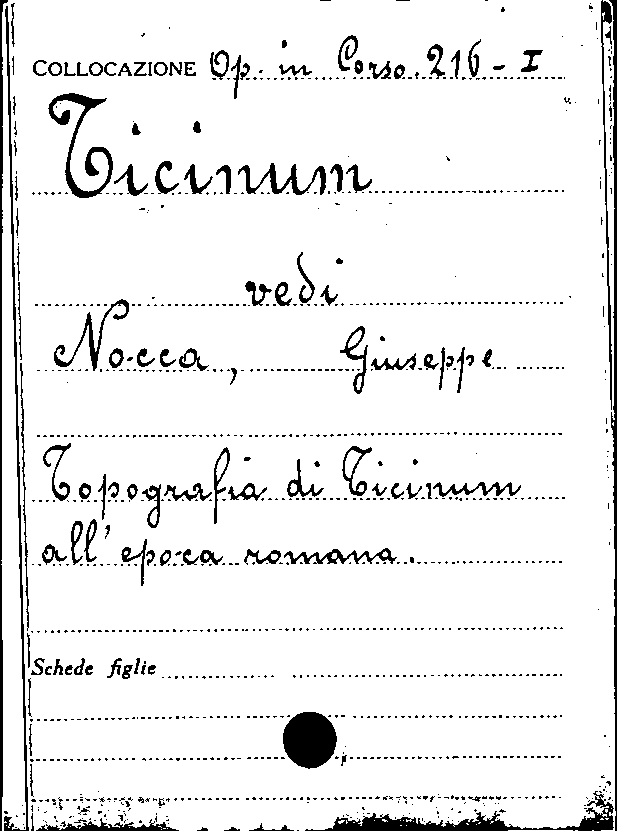 COLLOCAZIONE Op. in Corso. 216 - I
Ticinum
vedi
Nocca, Giuseppe
Topografia di Ticinum
all'epoca romana.
Schede figlie